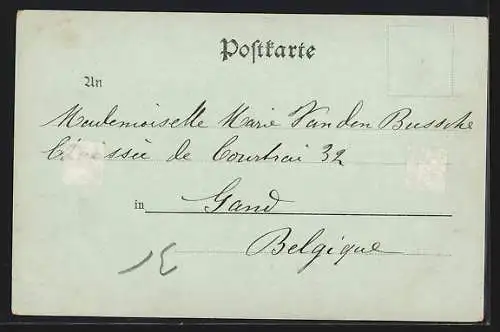 Postkarte
An
Mademoiselle Marie Van den Bussche
Chaussée de Courtrai 32
in Gand
Belgique